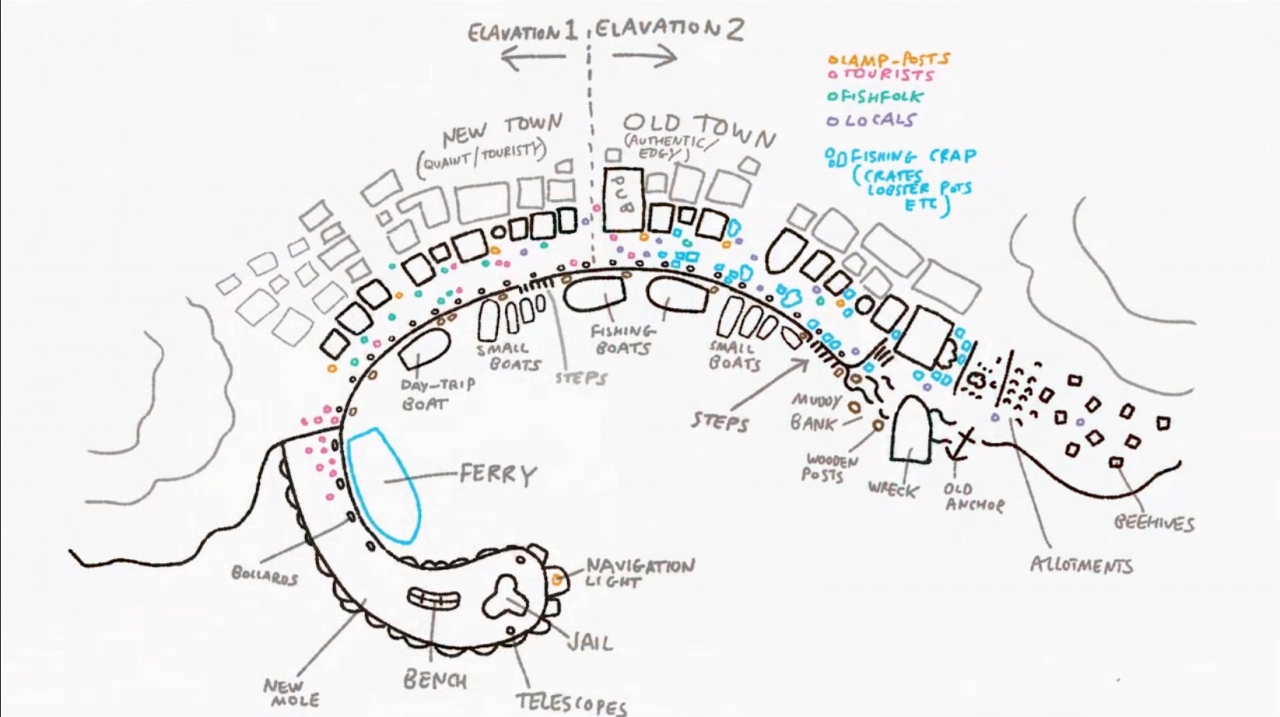 ELAVATION 1
ELAVATION 2
LAMP-POSTS
TOURISTS
FISHFOLK
LOCALS
FISHING CRAP
(CRATES
LOBSTER POTS
ETC)
NEW TOWN
(QUAINT/TOURISTY)
OLD TOWN
(AUTHENTIC/
EDGY)
PUB
DAY-TRIP
BOAT
SMALL
BOATS
STEPS
FISHING
BOATS
SMALL
BOATS
STEPS
MUDDY
BANK
WOODEN
POSTS
WRECK
OLD
ANCHOR
BEEHIVES
ALLOTMENTS
FERRY
BOLLARDS
NAVIGATION
LIGHT
JAIL
NEW
MOLE
BENCH
TELESCOPES